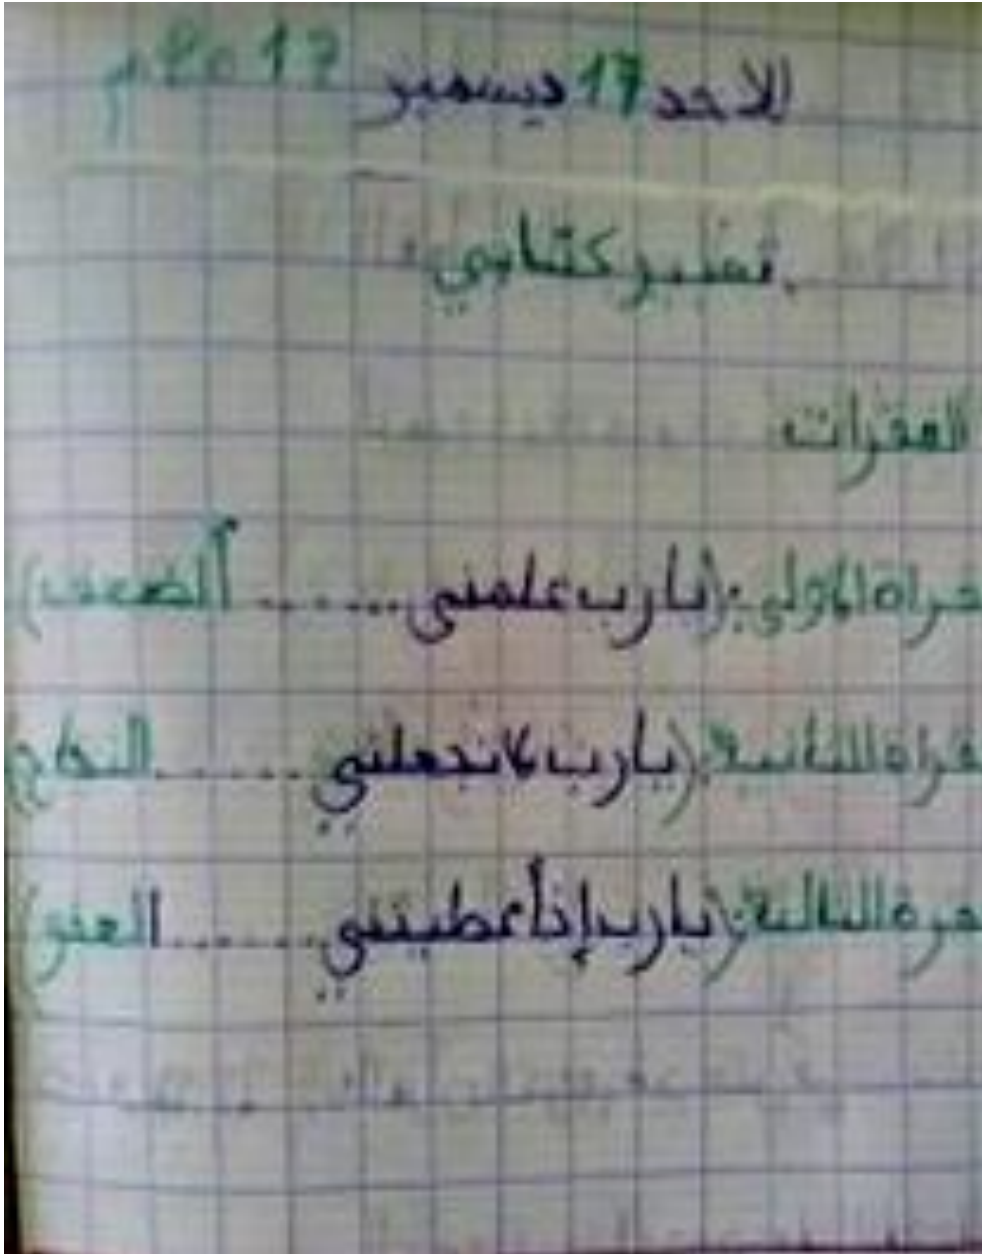 الاحد 17 ديسمبر 2017م
تعبير كتابي:
الفقرات
فقراة الاولى: (يا رب علمني ...... الضعف)
فقراة الثانية: (يا رب لا تجعلني ...... النجاح)
فقرة الثالثة: (يا رب إذا أعطيتني ...... العفو)